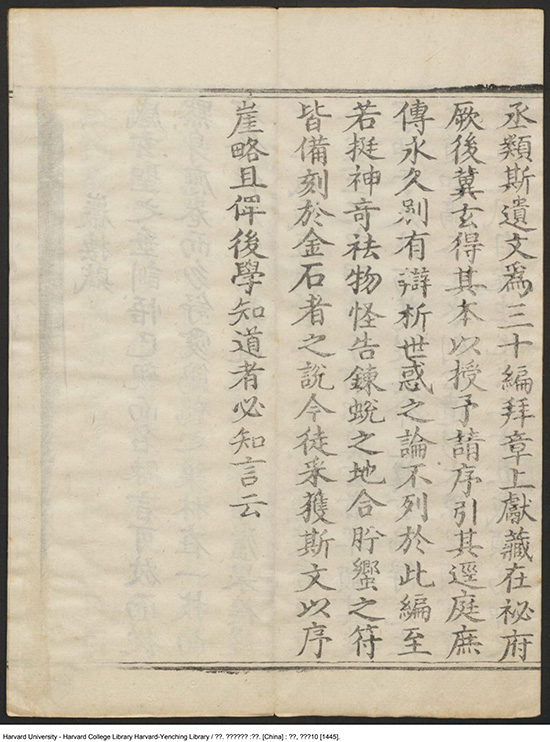 丞類斯遺文爲三十編拜章上獻藏在祕府
厥後冀玄得其本以授予請序引其逕庭庶
傳永久別有辯析世惑之論不列於此編至
若挺神奇袪物怪告鍊蛻之地合肸蠁之符
皆備刻於金石者之說今徒采獲斯文以序
崖略且俾後學知道者必知言云
Harvard University - Harvard College Library Harvard-Yenching Library / ??. ?????? :??. [China] : ??, ???10 [1445].